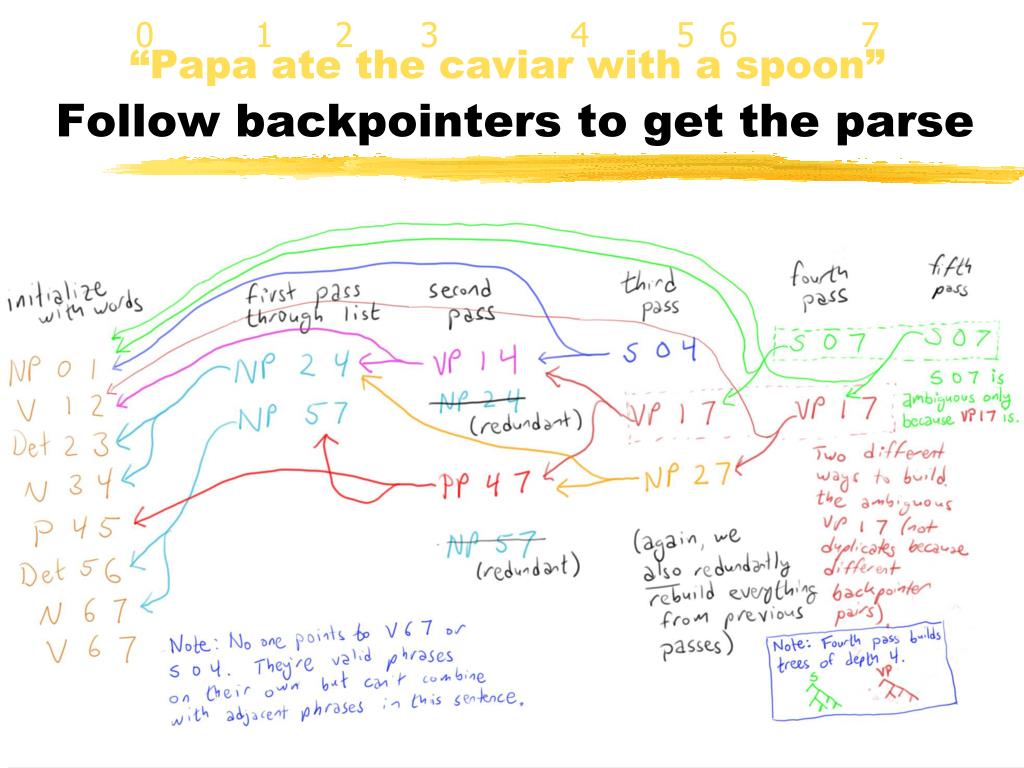 0 1 2 3 4 5 6 7
“Papa ate the caviar with a spoon”
Follow backpointers to get the parse
initialize
with words
NP 0 1
V 1 2
Det 2 3
N 3 4
P 4 5
Det 5 6
N 6 7
V 6 7
first pass
through list
NP 2 4
NP 5 7
second
pass
VP 1 4
NP 2 4
(redundant)
PP 4 7
NP 5 7
(redundant)
third
pass
S 0 4
VP 1 7
NP 2 7
(again, we
also redundantly
rebuild everything
from previous
passes)
fourth
pass
S 0 7
VP 1 7
fifth
pass
S 0 7
S 0 7 is
ambiguous only
because VP 1 7 is.
Two different
ways to build
the ambiguous
VP 1 7 (not
duplicates because
different
backpointer
pairs).
Note: No one points to V 6 7 or
S 0 4. They're valid phrases
on their own but can't combine
with adjacent phrases in this sentence.
Note: Fourth pass builds
trees of depth 4.
S
VP